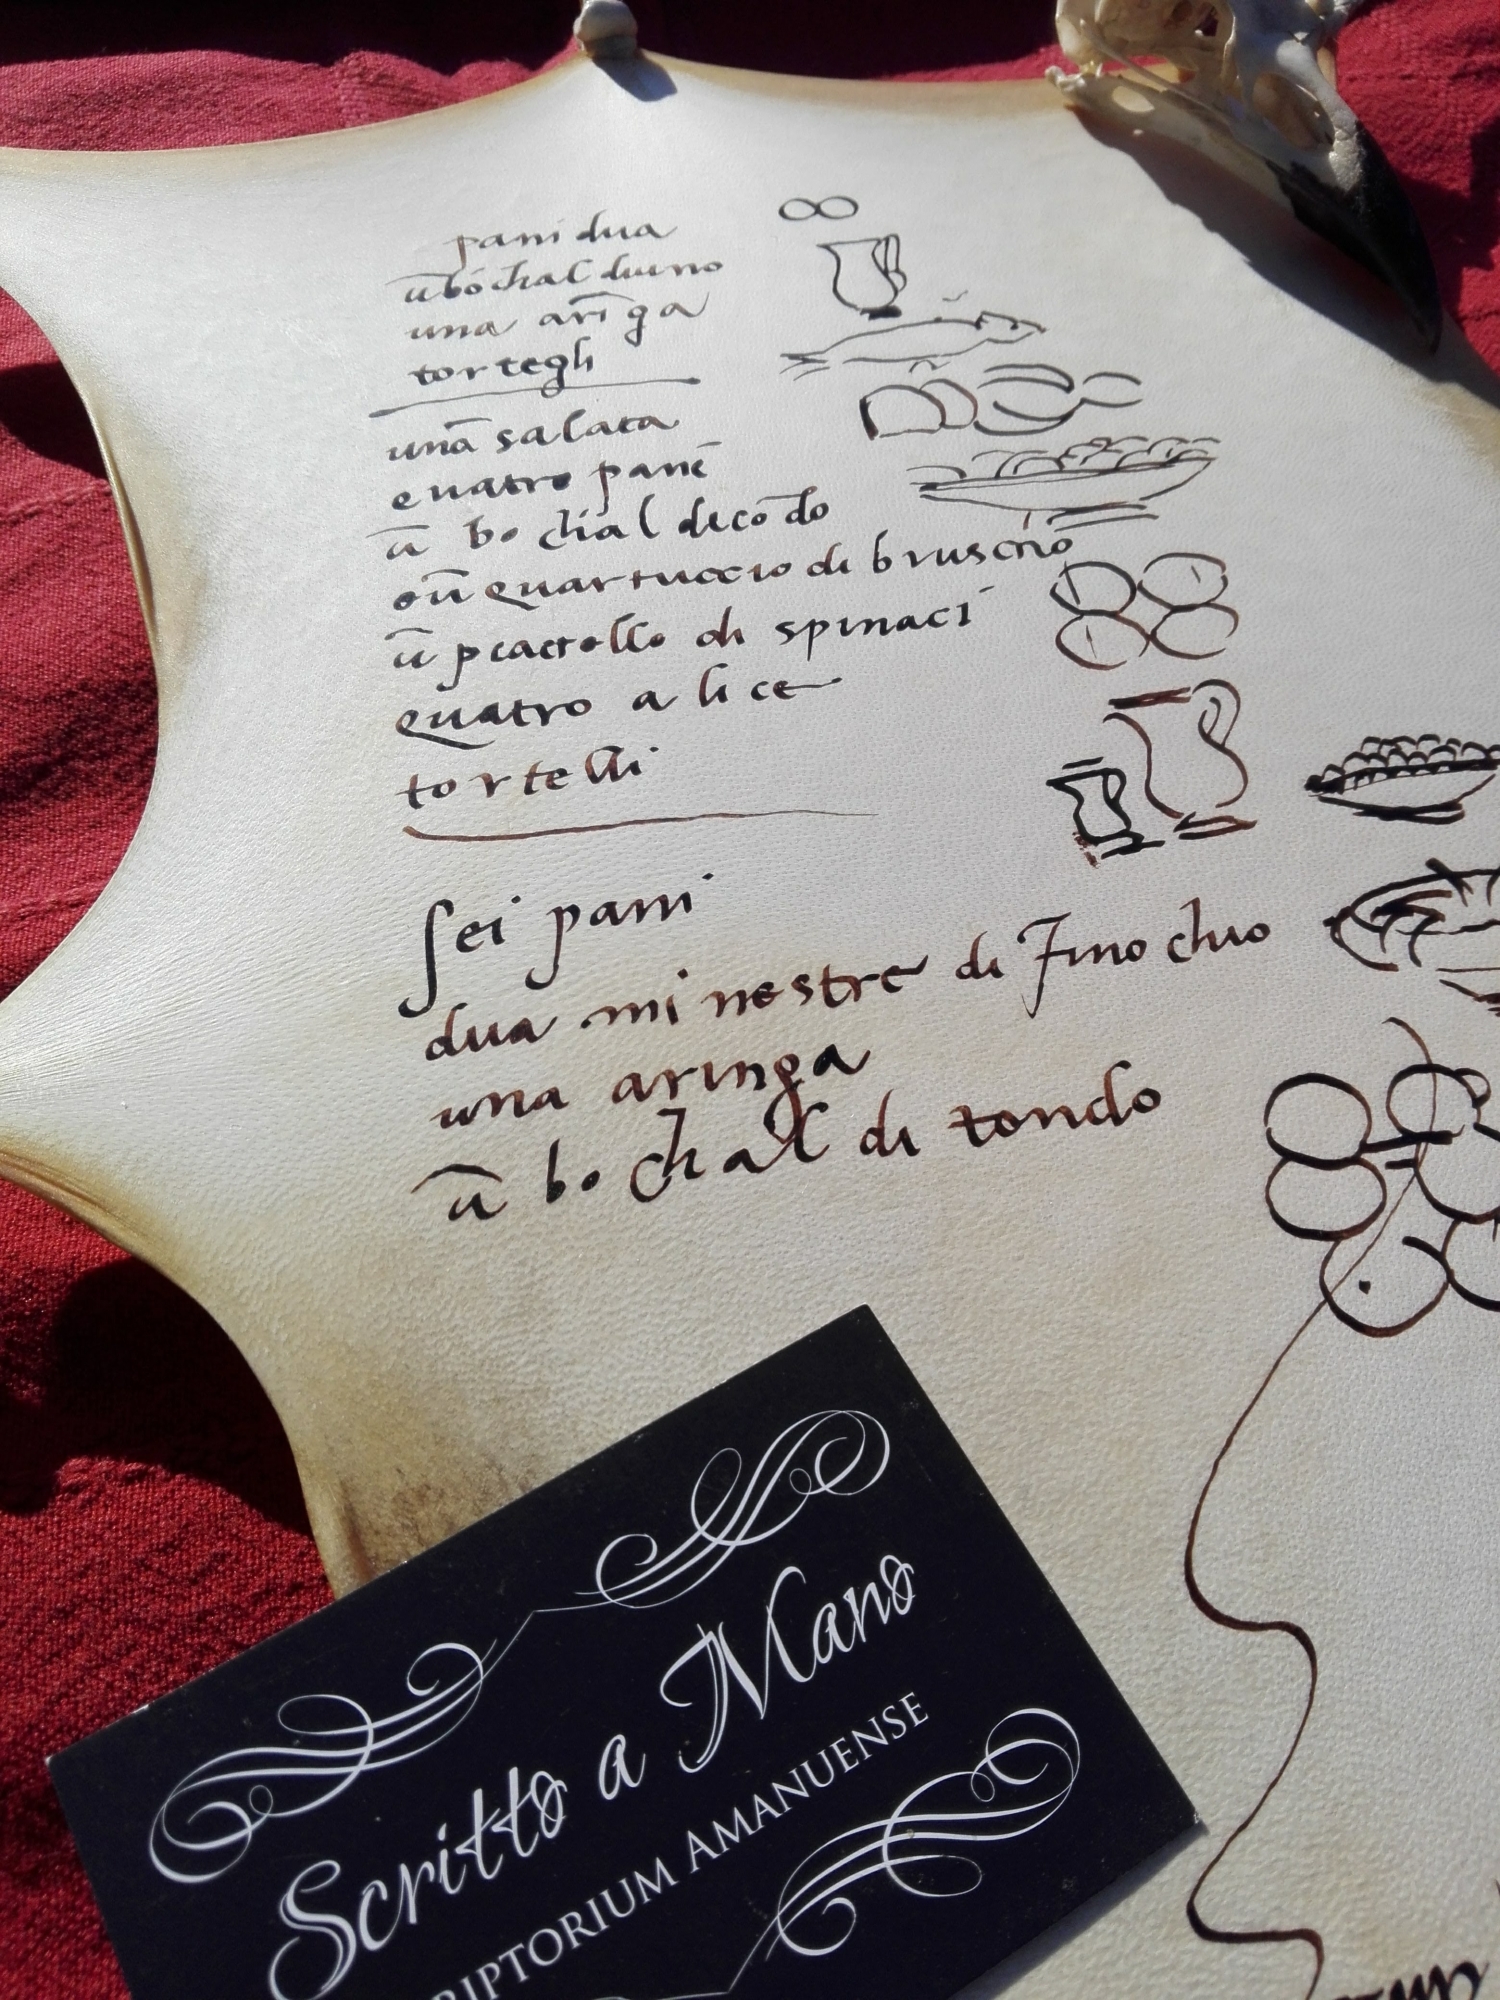 pani dua
ū bochal duino
una arīga
tortegli
unā salata
quatro panē
ū bochial decōdo
oū quartuccio di bruscīo
ū piactello di spinaci
quatro alice
tortelli
sei pani
dua minestre di finochio
una aringa
ū bochal di tondo
Scritto a Mano
RIPTORIUM AMANUENSE